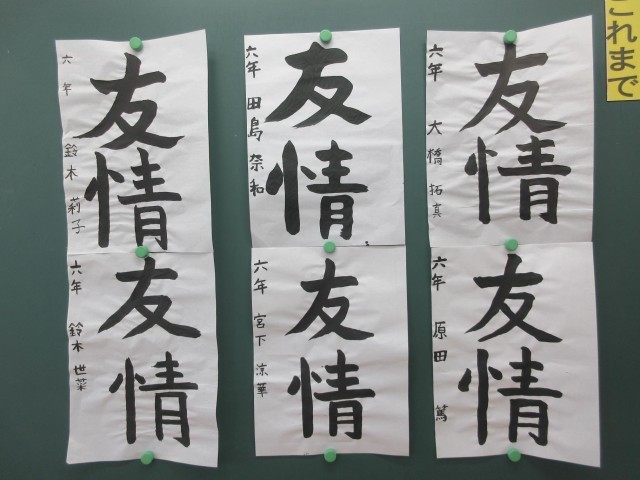 これまで
友情
六年 大橋拓真
友情
六年 田島奈和
友情
六年 鈴木莉子
友情
六年 原田 篤
友情
六年 宮下涼華
友情
六年 鈴木世菜